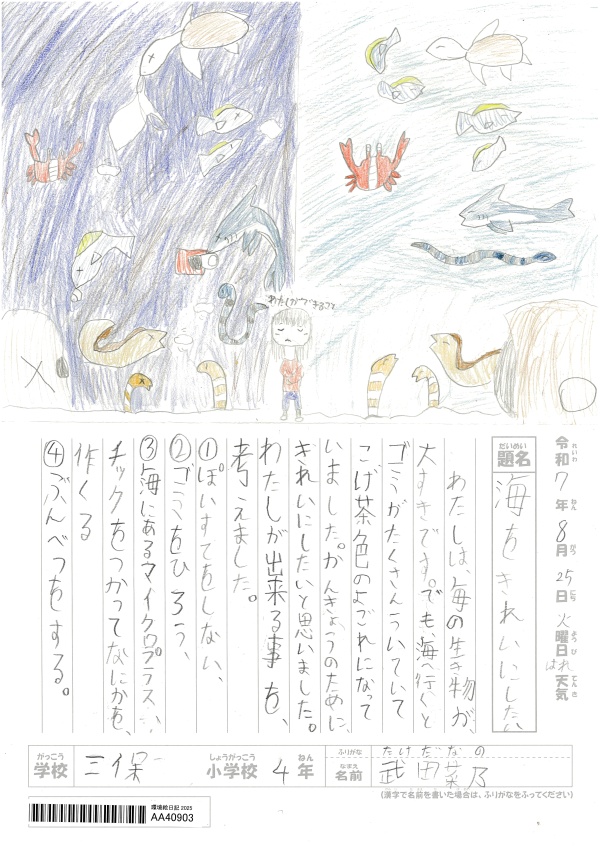 わたしができること
令和7年8月25日火曜日はれ天気
れいわ ねん がつ にち ようび てんき
だいめい
題名
海をきれいにしたい
わたしは、海の生き物が、
大すきです。でも、海へ行くと
ゴミがたくさんういていて
こげ茶色のよごれになって
いました。かんきょうのために、
きれいにしたいと思いました。
わたしが出来る事を、
考えました。
①ぽいすてをしない、
②ゴミをひろう、
③海にあるマイクロプラス
チックをつかってなにかを、
作くる
④ぶんべつをする。
がっこう
学校
三保
しょうがっこう
小学校
4年
ねん
ふりがな
たけだなの
なまえ
名前
武田菜乃
(漢字で名前を書いた場合は、ふりがなをふってください)
環境絵日記 2025
AA40903